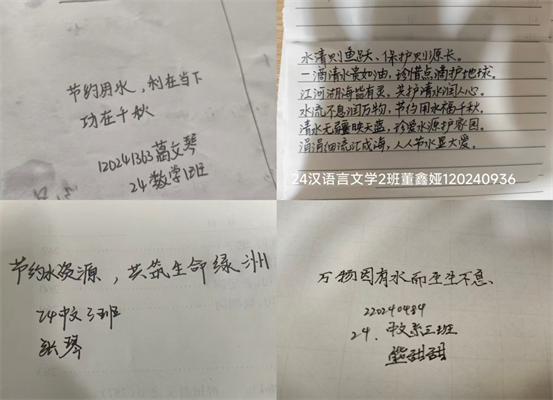 节约用水，利在当下
功在千秋
120241363葛文琴
24数学1班
水清则鱼跃、保护则源长。
一滴清水贵如油，珍惜点滴护地球。
江河湖海皆有灵，关护清水润人心。
水流不息润万物，节约用水福千秋。
清水无疆映天蓝，珍爱水源护家园。
涓涓细流汇成海，人人节水显大爱。
24汉语言文学2班董鑫娅120240936
节约水资源，共筑生命绿洲
24中文3班
张琴
万物因有水而生生不息、
220240484
24.中文系三班
熊甜甜